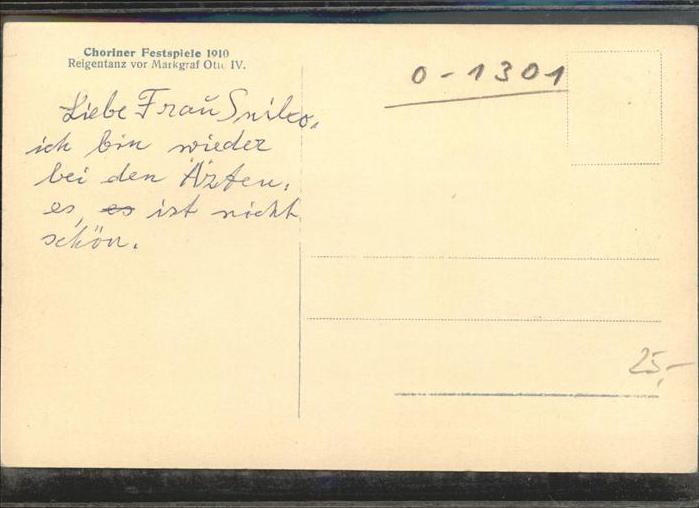 Choriner Festspiele 1910
Reigentanz vor Markgraf Otto IV.
O-1301
Liebe Frau
ich bin wieder
bei den Äzten,
es, ~~es~~ ist nicht
schön.
25,-